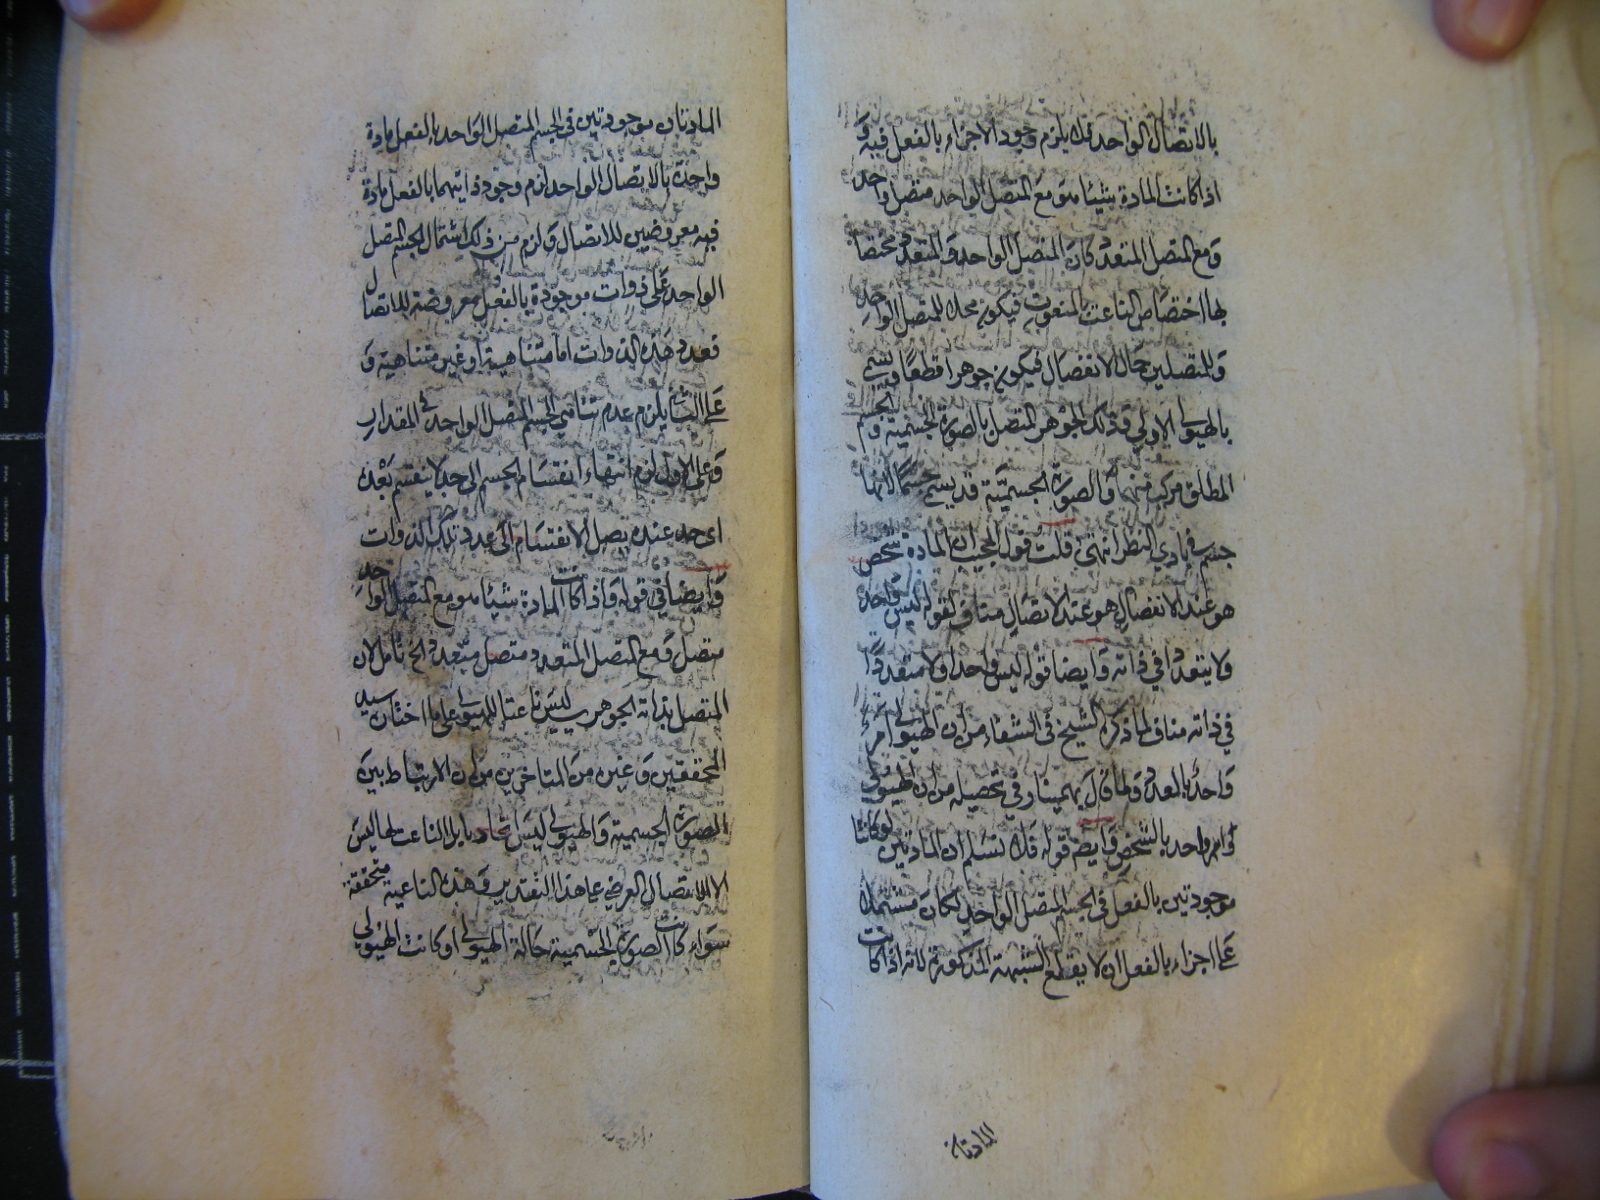 بالاتصال الواحد فلا يلزم وجود الاجزاء بالفعل فيه و
اذا كانت المادة شيئا هو مع المتصل الواحد متصل واحد
و مع المتصل المتعدد كان المتصل الواحد و المتعدد مختصا
بها اختصاص الناعت بالمنعوت فيكون محلا للمتصل الواحد
و للمتصلين حال الانفصال فيكون جوهرا قطعا و يسمى
بالهيولى الاولى و ذلك الجوهر المتصل بالصورة الجسمية و الجسم
المطلق مركب منهما و الصورة الجسمية قد يسمى جسما لانها
جسم في بادي النظر انتهى قلت قول المجيب ان المادة شخص
هو عند الانفصال هو عند الاتصال مناف لقوله ليس واحد
ولا يتعدد في ذاته و ايضا قوله ليس واحدا ولا متعددا
في ذاته مناف لما ذكر الشيخ في الشفاء من ان الهيولى امر
واحد بالعدد و لما قال بهمنيار في تحصيله من ان الهيولى
امر واحد بالشخص و ايضا قوله فلا نسلم ان المادتين لو كانتا
موجودتين بالفعل في الجسم المتصل الواحد لكان مشتملا
على اجزاء بالفعل ان لا يقطع الشبهة المذكورة لانه اذا كانت
المادتان
المادتان موجودتين في الجسم المتصل الواحد بالفعل مادة
واحدة بالاتصال الواحد لزم وجود ذاتيهما بالفعل مادة
فيه معروضين للاتصال و لزم من ذلك اشتمال الجسم المتصل
الواحد على ذوات موجودة بالفعل معروضة للاتصال
فعدد هذه الذوات اما متناهية او غير متناهية و
على الثاني يلزم عدم تناهي الجسم المتصل الواحد في المقدار
و على الاول لزم انتهاء انقسام الجسم الى حد لا ينقسم بعده
اى حد عنده يصل الانقسام الى عدد تلك الذوات
و ايضا في قوله و اذا كانت المادة شيئا هو مع المتصل الواحد
متصل و مع المتصل المتعدد متصل متعدد الخ تامل لان
المتصل بذاته الجوهري ليس ناعتا للهيولى على ما اختاره سيد
المحققين و غيره من المتاخرين من ان الارتباط بين
الصورة الجسمية و الهيولى ليس بل الناعت لها ليس
الا الاتصال العرضي على هذا التقدير و هذه الناعتية متحققة
سواء كانت الصورة الجسمية حالة الهيولى او كانت الهيولى